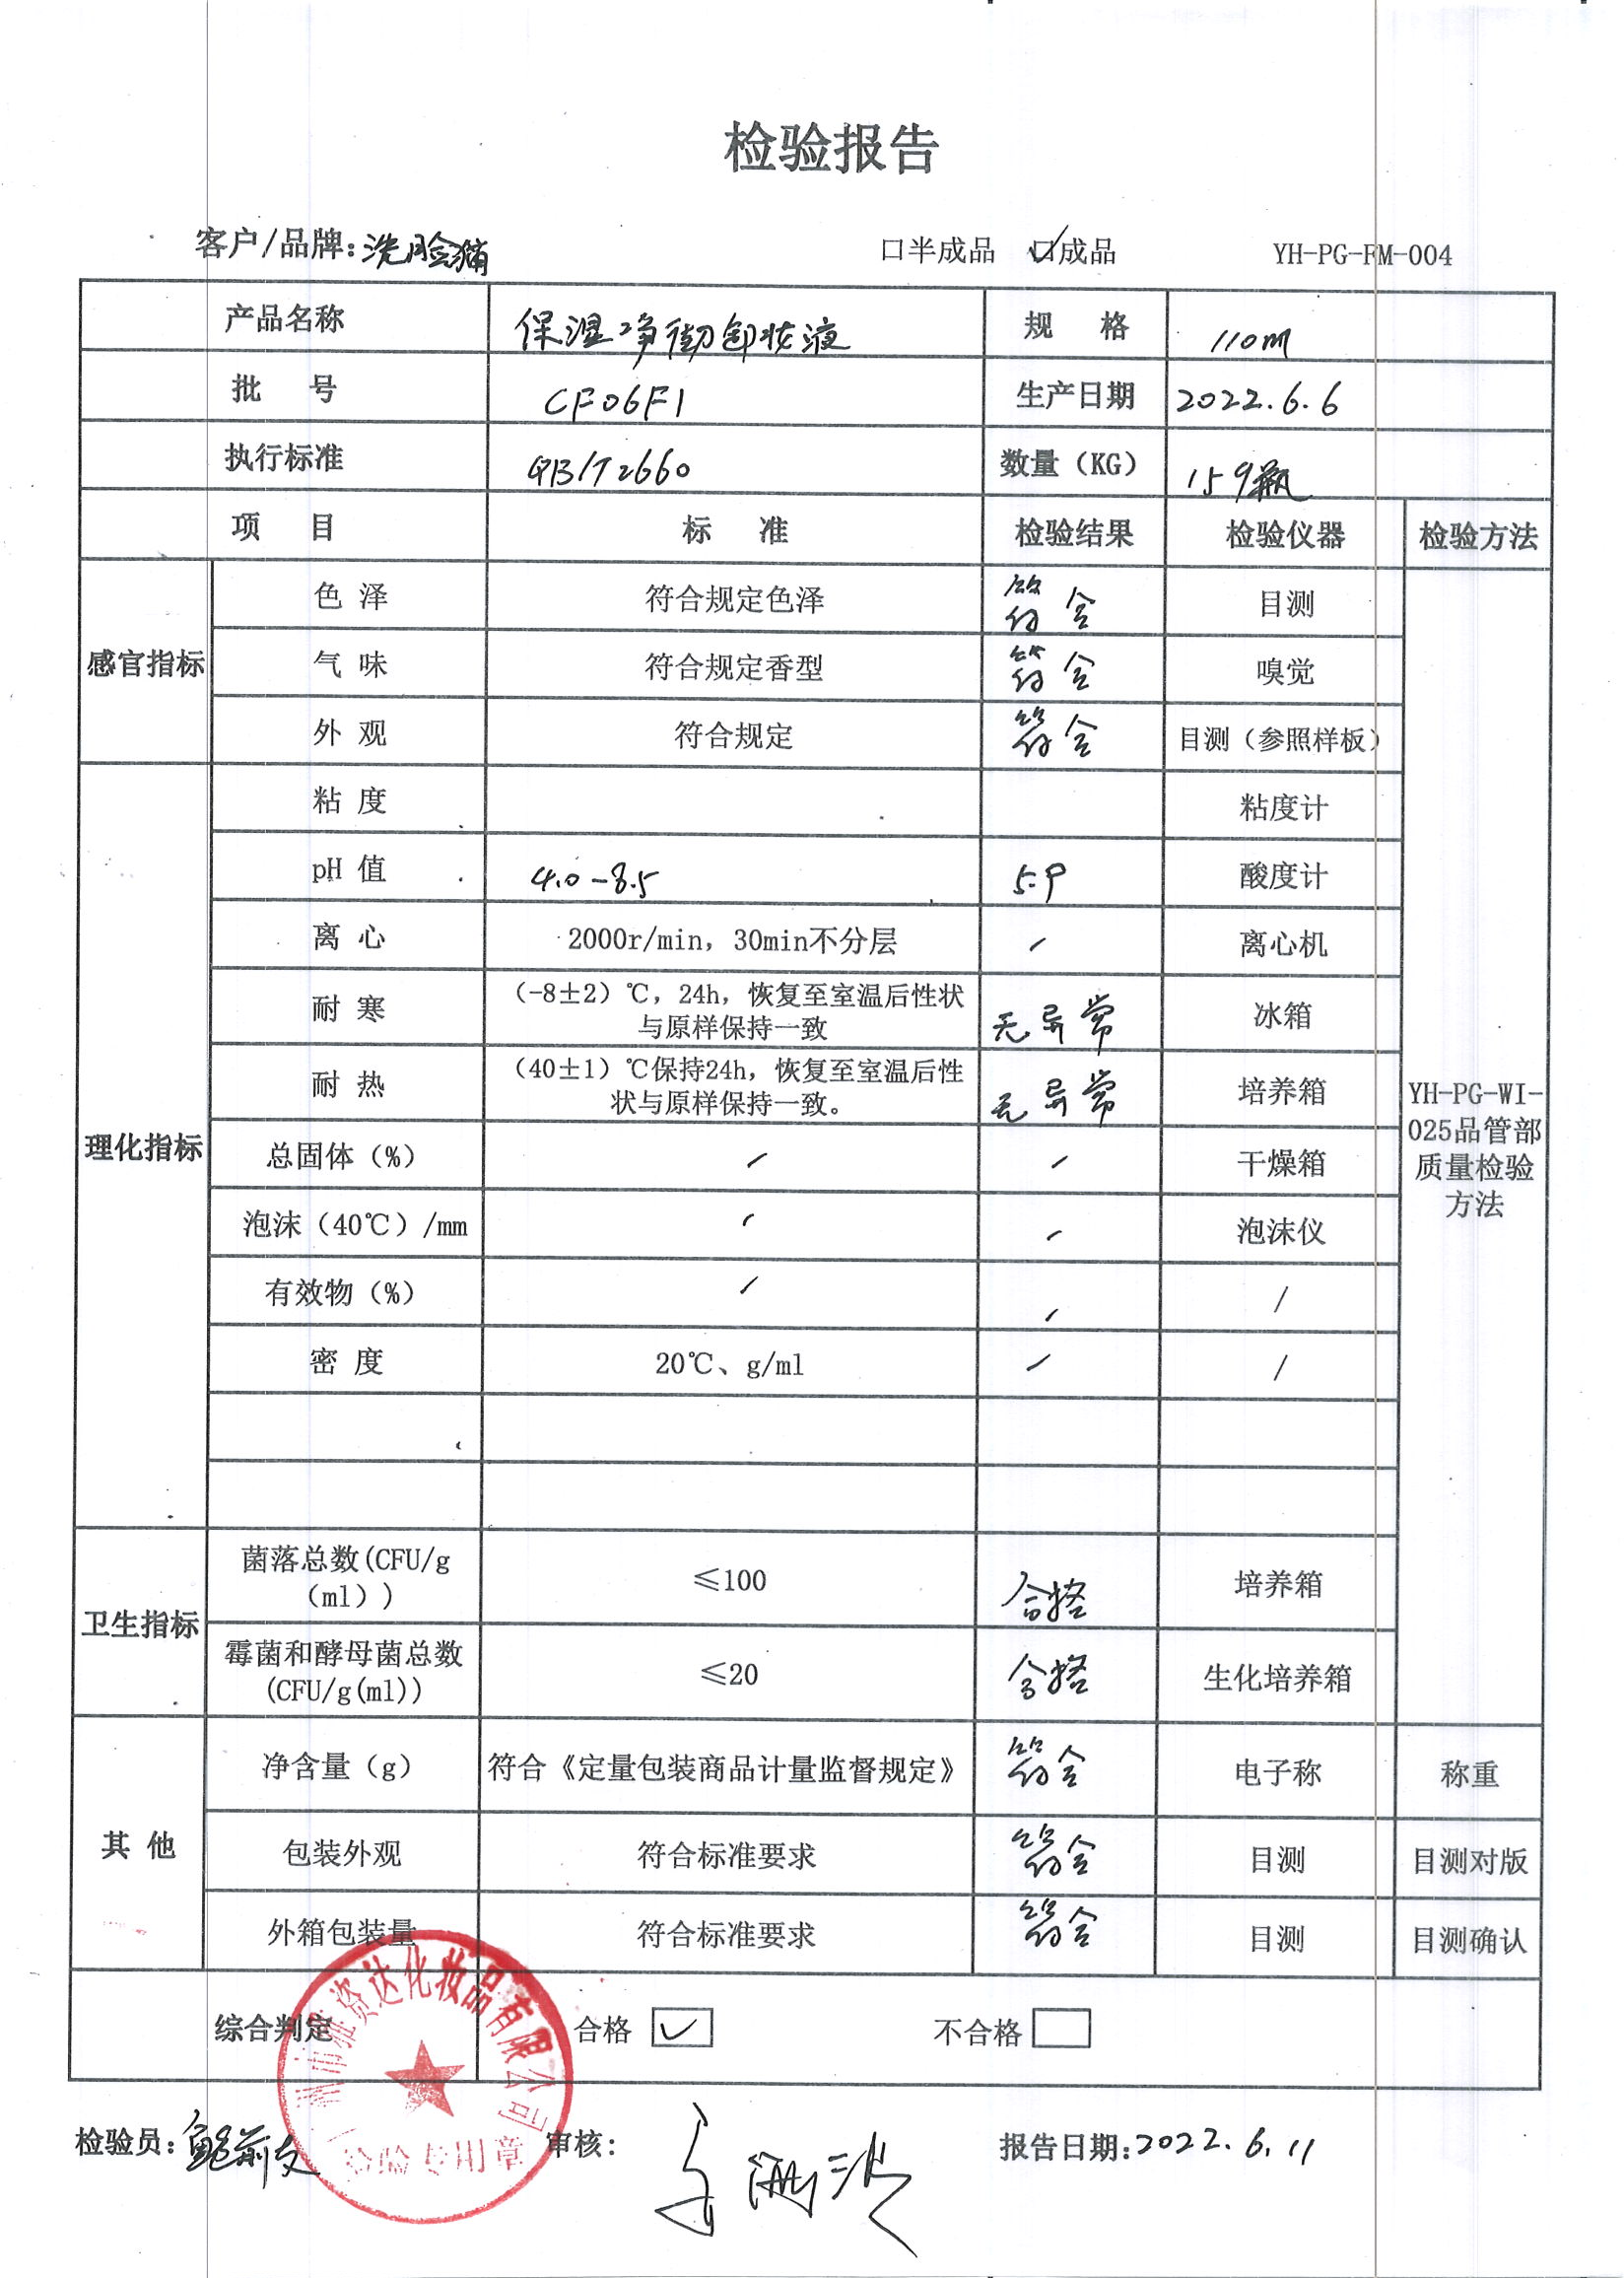 检验报告
客户/品牌：洗脸猫 口半成品 口成品 YH-PG-FM-004
产品名称 保湿净彻卸妆液 规 格 110ml
批 号 CF06F1 生产日期 2022.6.6
执行标准 QB/T2660 数量（KG） 159瓶
项 目 标 准 检验结果 检验仪器 检验方法
感官指标 色 泽 符合规定色泽 符合 目测
气 味 符合规定香型 符合 嗅觉
外 观 符合规定 符合 目测（参照样板）
理化指标 粘 度 粘度计
pH 值 4.0-8.5 5.9 酸度计
离 心 2000r/min，30min不分层 / 离心机
耐 寒 （-8±2）℃，24h，恢复至室温后性状
与原样保持一致 无异常 冰箱
耐 热 （40±1）℃保持24h，恢复至室温后性
状与原样保持一致。 无异常 培养箱
YH-PG-WI-
025品管部
质量检验
方法
总固体（%） / / 干燥箱
泡沫（40℃）/mm / / 泡沫仪
有效物（%） / / /
密 度 20℃、g/ml / /
卫生指标 菌落总数(CFU/g
（ml）) ≤100 合格 培养箱
霉菌和酵母菌总数
(CFU/g(ml)) ≤20 合格 生化培养箱
其 他 净含量（g） 符合《定量包装商品计量监督规定》 符合 电子称 称重
包装外观 符合标准要求 符合 目测 目测对版
外箱包装量 符合标准要求 符合 目测 目测确认
综合判定 合格 不合格
州市雅资达化妆品有限公司
检验专用章
检验员： 审核： 报告日期：2022.6.11